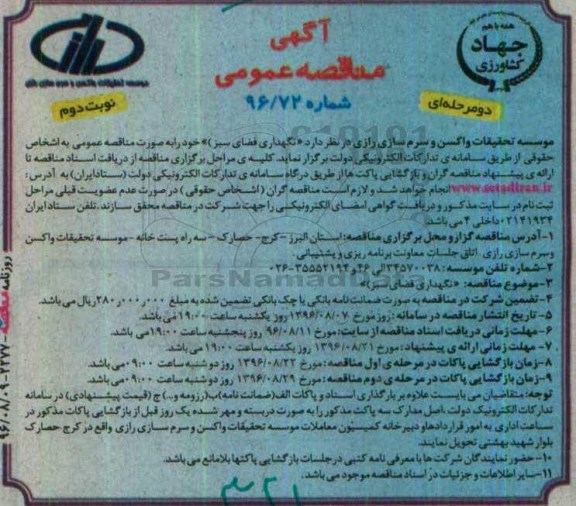 همه با هم
جهاد
کشاورزی
آگهی
مناقصه عمومی
شماره ۹۶/۷۲
رازی
موسسه تحقیقات واکسن و سرم سازی رازی
دو مرحله‌ای
نوبت دوم
موسسه تحقیقات واکسن و سرم سازی رازی در نظر دارد «نگهداری فضای سبز)» خود را به صورت مناقصه عمومی به اشخاص
حقوقی از طریق سامانه ی تدارکات الکترونیکی دولت برگزار نماید. کلیه ی مراحل برگزاری مناقصه از دریافت اسناد مناقصه تا
ارائه ی پیشنهاد مناقصه گران و بازگشایی پاکت ها از طریق درگاه سامانه ی تدارکات الکترونیکی دولت (ستاد ایران) به آدرس:
www.setadiran.ir انجام خواهد شد و لازم است مناقصه گران (اشخاص حقوقی) در صورت عدم عضویت قبلی مراحل
ثبت نام در سایت مذکور و دریافت گواهی امضای الکترونیکی را جهت شرکت در مناقصه محقق سازند. تلفن ستاد ایران
۰۲۱۴۱۹۳۴ داخلی ۴ می باشد.
۱-آدرس مناقصه گزار و محل برگزاری مناقصه: استان البرز -کرج- حصارک -سه راه پست خانه -موسسه تحقیقات واکسن
وسرم سازی رازی اتاق جلسات معاونت برنامه ریزی و پشتیبانی.
۲-شماره تلفن موسسه: ۳۴۵۷۰۰۳۸الی۴۶و۳۵۵۵۲۱۹۴-۰۲۶
۳-موضوع مناقصه: «نگهداری فضای سبز)»
۴-تضمین شرکت در مناقصه به صورت ضمانت نامه بانکی یا چک بانکی تضمین شده به مبلغ ۲۸۰٫۰۰۰٫۰۰۰ریال می باشد.
۵- تاریخ انتشار مناقصه در سامانه :روز مورخ ۱۳۹۶/۰۸/۰۷ روز یکشنبه ساعت ۱۹:۰۰ می باشد.
۶- مهلت زمانی دریافت اسناد مناقصه از سایت: مورخ ۹۶/۰۸/۱۱ روز پنجشنبه ساعت ۱۹:۰۰می باشد.
۷- مهلت زمانی ارائه ی پیشنهاد: مورخ ۱۳۹۶/۰۸/۲۱ روز یکشنبه ساعت ۱۹:۰۰ می باشد.
۸-زمان بازگشایی پاکات در مرحله ی اول مناقصه: مورخ ۱۳۹۶/۰۸/۲۲ روز دو شنبه ساعت ۰۹:۰۰می باشد.
۹-زمان بازگشایی پاکات در مرحله ی دوم مناقصه: مورخ ۱۳۹۶/۰۸/۲۹ روز دو شنبه ساعت ۰۹:۰۰می باشد.
توجه: متقاضیان می بایست علاوه بر بارگذاری اسناد و پاکات الف(ضمانت نامه)ب(رزومه و..)ج (قیمت پیشنهادی) در سامانه
تدارکات الکترونیک دولت ،اصل مدارک سه پاکت مذکور را به صورت دربسته و مهر شده یک روز قبل از بازگشایی پاکات مذکور در
ساعت اداری به امور قراردادها و دبیرخانه کمیسیون معاملات موسسه تحقیقات واکسن و سرم سازی رازی واقع در کرج حصارک
بلوار شهید بهشتی تحویل نمایند.
۱۰-حضور نمایندگان شرکت ها با معرفی نامه کتبی در جلسات بازگشایی پاکتها بلامانع می باشد.
۱۱-سایر اطلاعات و جزئیات در اسناد مناقصه موجود می باشد.
ParsNamadData
۹۶/۰۸/۰۹-۲۷۷۷
روزنامه
۳۲۱